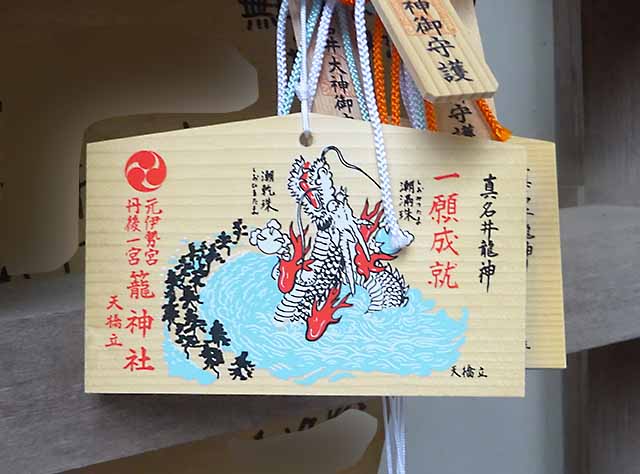 神御守護
井大神御
守護
無
真名井龍神
一願成就
潮満珠
しおみつたま
潮乾珠
しおひるたま
元伊勢宮
丹後一宮
籠神社
天橋立
天橋立